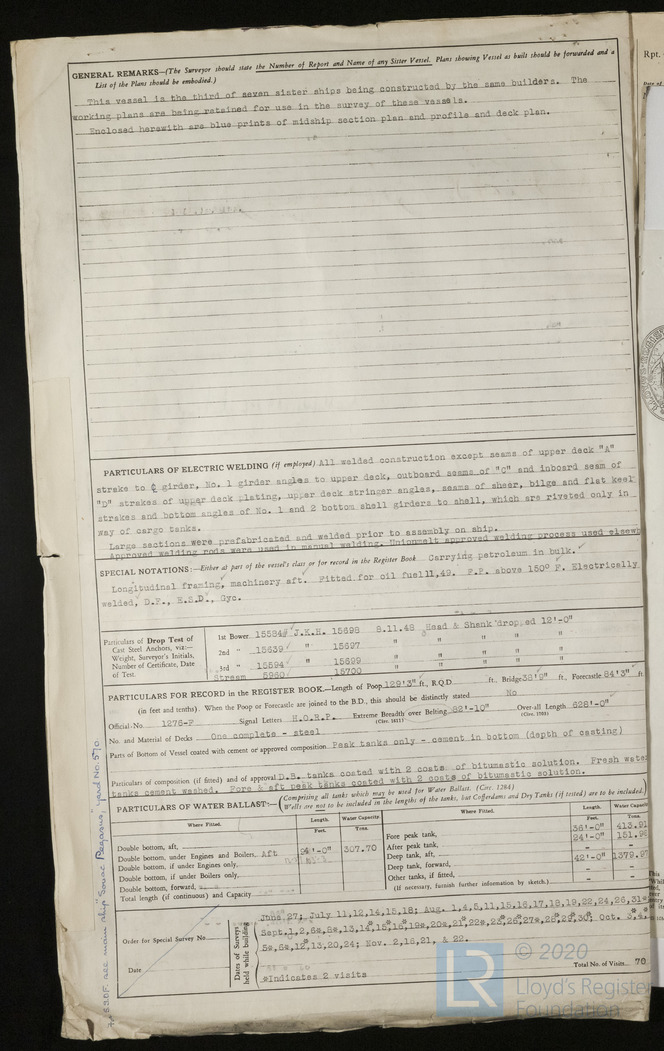 GENERAL REMARKS—(The Surveyor should state the Number of Report and Name of any Sister Vessel. Plans showing Vessel as built should be forwarded and a
List of the Plans should be embodied.)
This vessel is the third of seven sister ships being constructed by the same builders. The
working plans are being retained for use in the survey of these vessels.
Enclosed herewith are blue prints of midship section plan and profile and deck plan.
PARTICULARS OF ELECTRIC WELDING (if employed) All welded construction except seams of upper deck "A"
strake to ₵ girder, No. 1 girder angles to upper deck, outboard seams of "C" and inboard seam of
"D" strakes of upper deck plating, upper deck stringer angles, seams of sheer, bilge and flat keel
strakes and bottom angles of No. 1 and 2 bottom shell girders to shell, which are riveted only in
way of cargo tanks.
Large sections were prefabricated and welded prior to assembly on ship.
Approved welding rods were used in manual welding. Unionmelt approved welding process used elsewh
SPECIAL NOTATIONS:—Either as part of the vessel's class or for record in the Register Book Carrying petroleum in bulk.
Longitudinal framing, machinery aft. Fitted for oil fuel 11,48. F.P. above 150° F. Electrically
welded, D.F., E.S.D., Gyc.
Particulars of Drop Test of
Cast Steel Anchors, viz:—
Weight, Surveyor's Initials,
Number of Certificate, Date
of Test.
1st Bower 15584# J.K.H. 15698 8.11.48 Head & Shenk dropped 12'-0"
2nd " 15639 " 15697 " " " "
3rd " 15594 " 15699 " " " "
Stream 5260 15700 " " " "
PARTICULARS FOR RECORD in the REGISTER BOOK.—Length of Poop 129'3" ft., R.Q.D. ft., Bridge 38'0" ft., Forecastle 84'3" ft
(in feet and tenths). When the Poop or Forecastle are joined to the B.D., this should be distinctly stated No
Official No. 1275-F Signal Letters H.O.R.P. Extreme Breadth over Belting 82'-10" Over-all Length 628'-0"
(Circ. 1611) (Circ. 1703)
No. and Material of Decks One complete - steel
Parts of Bottom of Vessel coated with cement or approved composition Peak tanks only - cement in bottom (depth of casting)
Particulars of composition (if fitted) and of approval D.B. tanks coated with 2 coats of bitumastic solution. Fresh water
tanks cement washed. Fore & aft peak tanks coated with 2 coats of bitumastic solution.
PARTICULARS OF WATER BALLAST:— (Comprising all tanks which may be used for Water Ballast. (Circ. 1284)
Wells are not to be included in the lengths of the tanks, but Cofferdams and Dry Tanks (if tested) are to be included.)
Where Fitted. Length. Water Capacity. Where Fitted. Length. Water Capacity
Feet. Tons. Feet. Tons.
Double bottom, aft, Fore peak tank, 36'-0" 413.91
Double bottom, under Engines and Boilers, Aft 94'-0" 307.70 After peak tank, 24'-0"
Double bottom, if under Engines only, Deep tank, aft,
Double bottom, if under Boilers only, Deep tank, forward, 42'-0" 1379.97
Double bottom, forward, Other tanks, if fitted,
Total length (if continuous) and Capacity (If necessary, furnish further information by sketch.)
Order for Special Survey No.
Date
Dates of Surveys
held while building
June 27; July 11,12,14,15,18; Aug. 1,4,8,11,15,16,17,18,19,22,24,26,31*
5*,6*,12,13,20,24; Nov. 2,16,21, & 22.
*Indicates 2 visits
Total No. of Visits 70
© 2020
LR
Lloyd's Register
Foundation
Rpt.